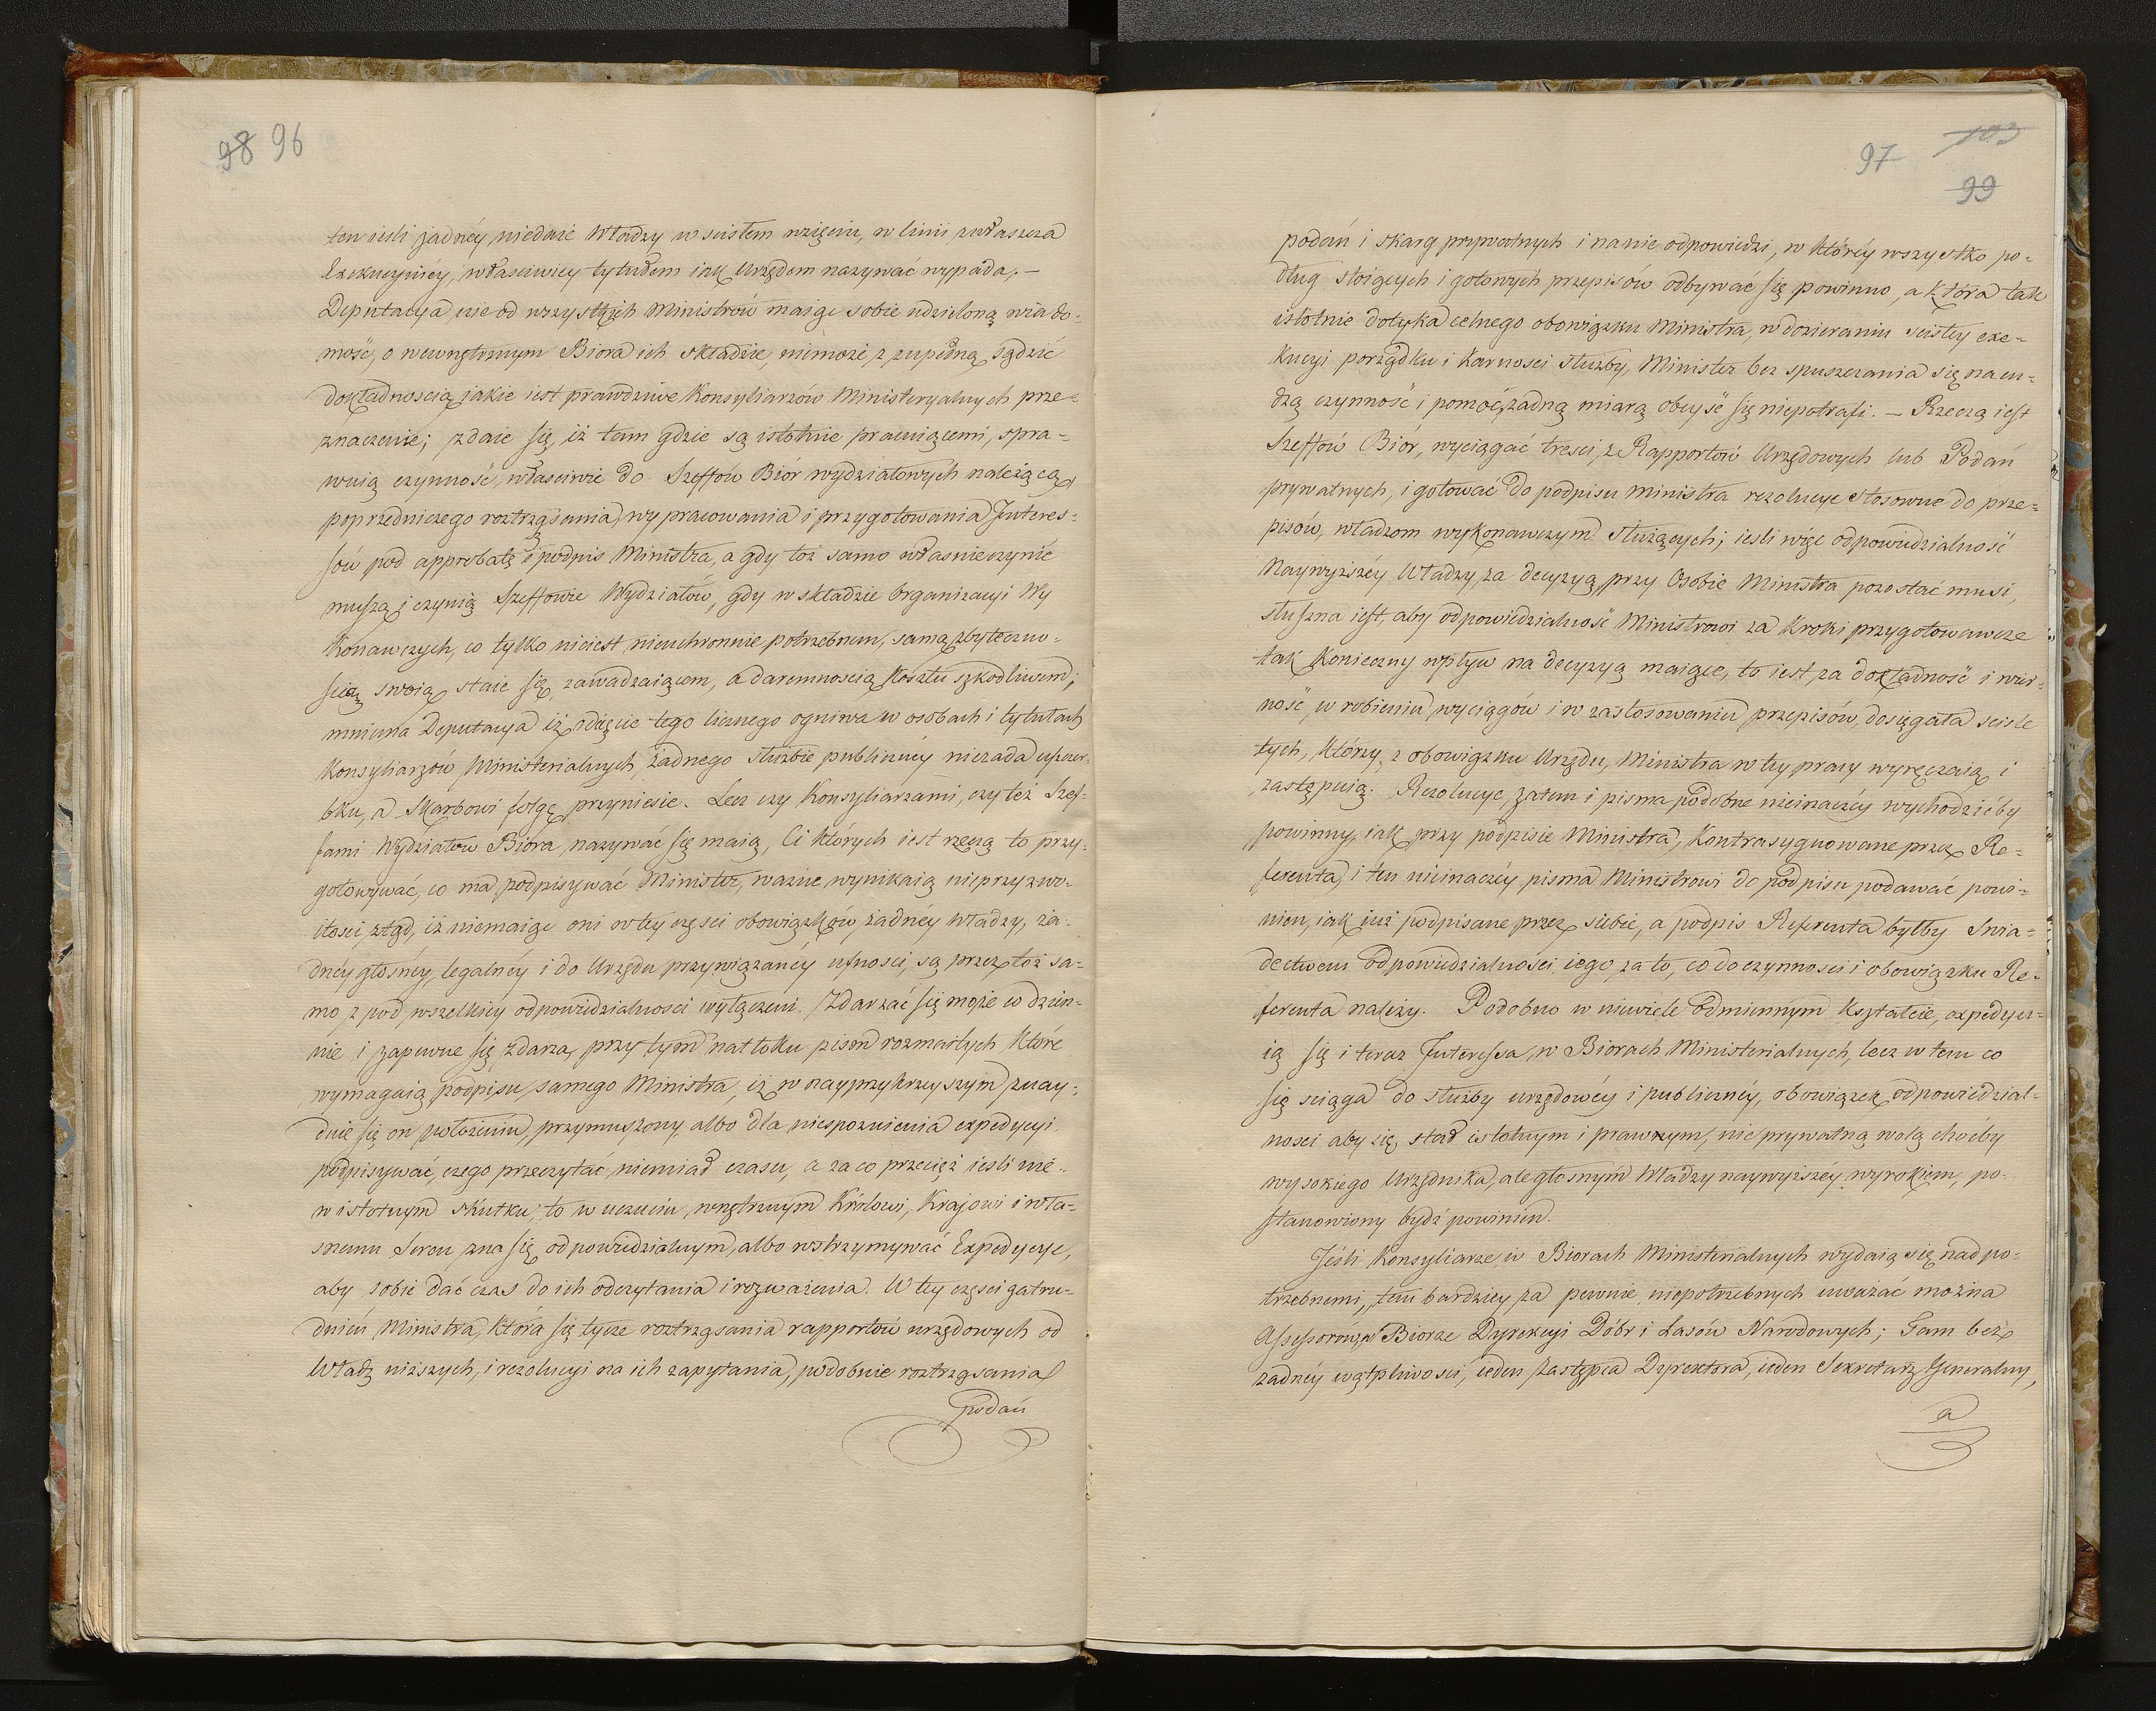 98 96
ten iesli żadnéy niedaie Władzy w scisłem wzięciu, w linii zwłaszcza
Exekucyinéy, właściwiey tytułem iak Urzędem nazywać wypada. –
Deputacya, nie od wszystkich Ministrów maiąc sobie udzieloną wiado-
mość, o wewnętrznym Biora ich składzie, niemoże z zupełną sądzić
dokładnością jakie iest prawdziwe Konsyliarzów Ministeryalnych prze-
znaczenie; zdaie się iż tam gdzie są istotnie pracuiącemi, spra-
wuią czynność właściwie do Szeffów Biór wydziałowych należącą
poprzedniczego roztrząsania, wypracowania i przygotowania Interes-
sów pod approbatę i podpis Ministra, a gdy toż samo własnie czynić
muszą i czynią Szeffowie Wydziałów, gdy w składzie Organizacyi Wy
konawczych, co tylko nieiest nieuchronnie potrzebnem, samą zbyteczno-
scią swoią staie się zawadzaiącem, a daremnością kosztu szkodliwem;
mniema Deputacya iż odięcie tego licznego ogniwa w osobach i tytułach
Konsyliarzów Ministerialnych, żadnego służbie publiczney niezada uszczer-
bku, a Skarbowi folgę przyniesie. Lecz czy Konsyliarzami, czy też Szef-
fami Wydziałów Biora nazywać się maią, Ci których iest rzeczą to przy-
gotowywać, co ma podpisywać Minister, ważne wynikaią nieprzyzwo-
itosci ztąd, iż niemaiąc oni w tey częsci obowiązków żadnéy władzy, ża-
dnéy głośnéy, legalnéy i do Urzędu przywiązanéy ufnosci, są przez toż sa-
mo z pod wszelkiéy odpowiedzialnosci wyłączeni. Zdarzać się może co dzien-
nie i zapewne się zdarza, przy tym natłoku pism rozmaitych które
wymagaią podpisu samego Ministra, iż w nayprzykrzeyszym znay-
duie się on położeniu, przymuszony, albo dla niespoznienia expedycyi
podpisywać, czego przeczytać niemiał czasu, a za co przecięż iesli nie
w istotnym skutku, to w uczuciu wewnętrznym Królowi, Krajowi i wła-
snemu Sercu zna się odpowiedzialnym, albo wstrzymywać Expedycye,
aby sobie dać czas do ich odczytania i rozważenia. W tey częsci zatru-
dnień Ministra, która się tycze roztrząsania rapportów urzędowych od
Władz niższych, i rezolucyi na ich zapytania, podobnie roztrząsania
podań
97 103
99
podań i skarg prywatnych i na nie odpowiedzi, w któréy wszystko po-
dług stoiących i gotowych przepisów odbywać się powinno, a która tak
istotnie dotyka celnego obowiązku Ministra, w dozieraniu scisłey exe-
kucyi porządku i karnosci służby, Minister bez spuszczania się na cu-
dzą czynność i pomoc, żadną miarą obeyść się niepotrafi. – Rzeczą iest
Szeffów Biór, wyciągać tresci, z Rapportów Urzędowych lub Podań
prywatnych, i gotować do podpisu Ministra rezolucye stosowne do prze-
pisów, władzom wykonawczym służących; iesli więc odpowiedzialność
Naywyższéy Władzy, za decyzyą, przy Osobie Ministra pozostać musi,
słuszna iest, aby odpowiedzialność Ministrowi za kroki przygotowawcze
tak konieczny wpływ na decyzyą maiące, to iest za dokładność i wier-
ność, w robieniu wyciągów i w zastosowaniu przepisów, dosięgała scisle
tych, którzy z obowiązku Urzędu, Ministra w tey pracy wyręczaią i
zastępuią. Rezolucye, zatem i pisma podobne nieinaczéy wychodzićby
powinny, iak przy podpisie Ministra, Kontrasygnowane przez Re-
ferenta, i ten nieinaczéy pisma Ministrowi do podpisu podawać powi-
nien, iak iuż podpisane przez siebie, a podpis Referenta byłby Świa-
dectwem odpowiedzialności iego, za to, co do czynnosci i obowiązku Re-
ferenta należy. Podobno w niewiele odmiennym kształcie, expedyu-
ią się i teraz Interessa w Biorach Ministerialnych, lecz w tem co
się sciąga do służby urzędowéy i publicznéy, obowiązek odpowiedzial-
nosci aby się stał istotnym i prawnym, nie prywatną wolą choćby
wysokiego Urzędnika, ale głosnym Władzy naywyższéy wyrokiem, po-
stanowiony bydź powinien.
Jeśli Konsyliarze w Biorach Ministerialnych wydaią się nadpo-
trzebnemi, tem bardziey za pewnie niepotrzebnych uważać można
Assessorów w Biorze Dyrekcyi Dóbr i Lasów Narodowych; Tam bez
żadnéy wątpliwosci, ieden Zastępca Dyrektora, ieden Sekretarz Generalny,
a